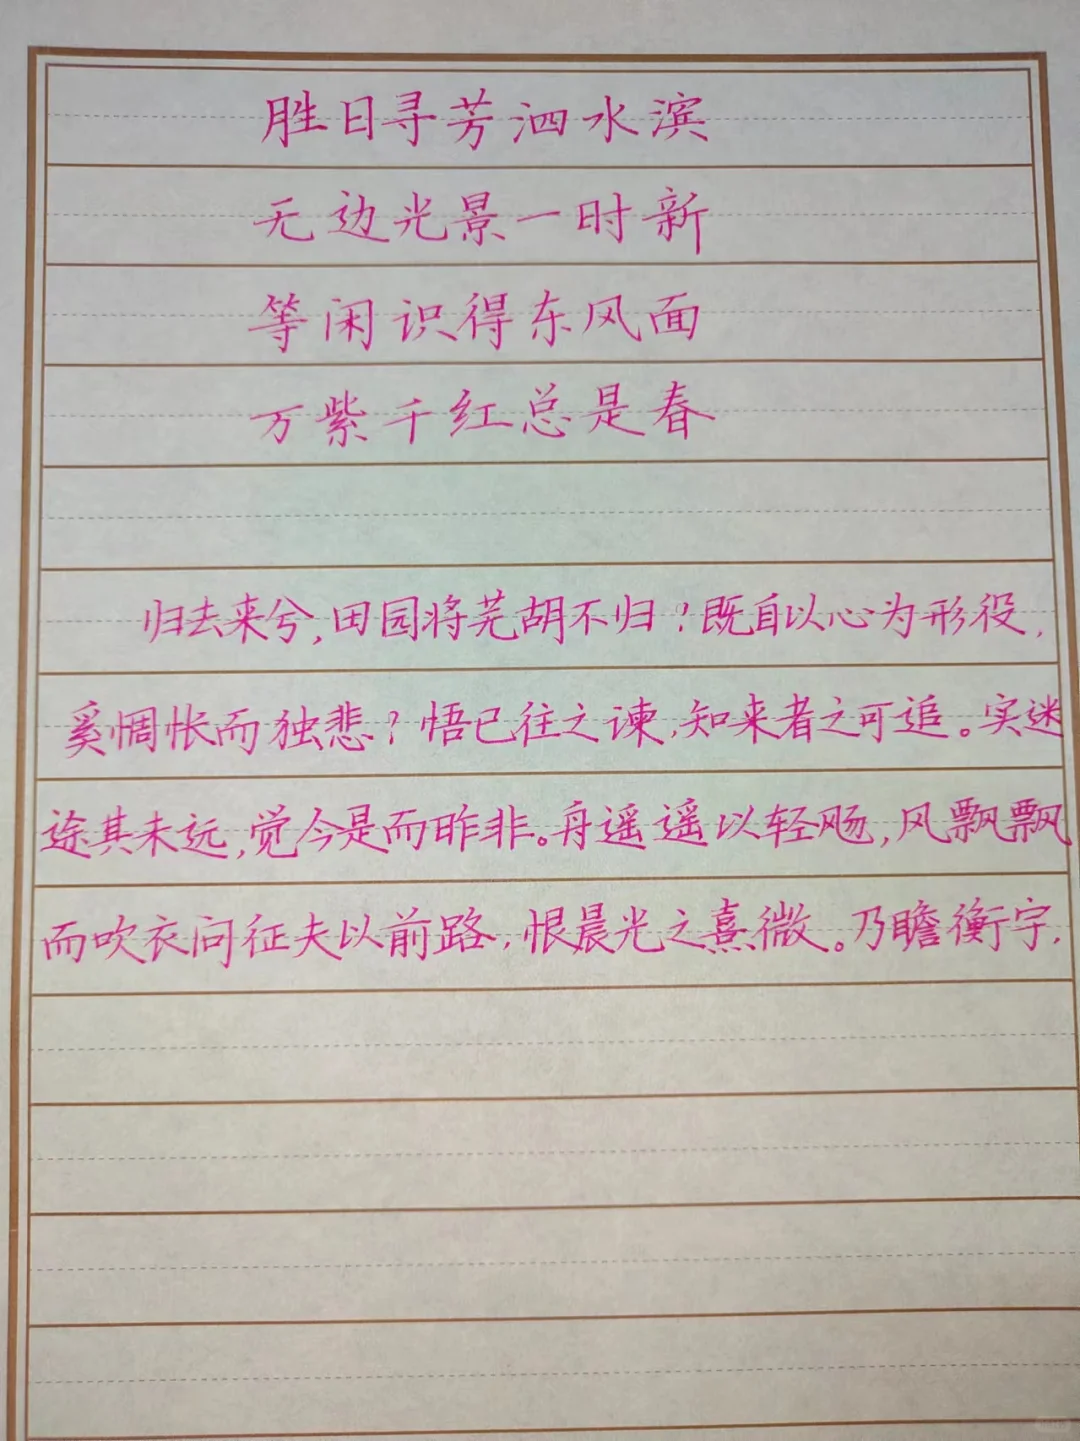 胜日寻芳泗水滨
无边光景一时新
等闲识得东风面
万紫千红总是春
归去来兮,田园将芜胡不归?既自以心为形役,
奚惆怅而独悲?悟已往之谏,知来者之可追。实迷
途其未远,觉今是而昨非。舟遥遥以轻飏,风飘飘
而吹衣问征夫以前路,恨晨光之熹微。乃瞻衡宇,